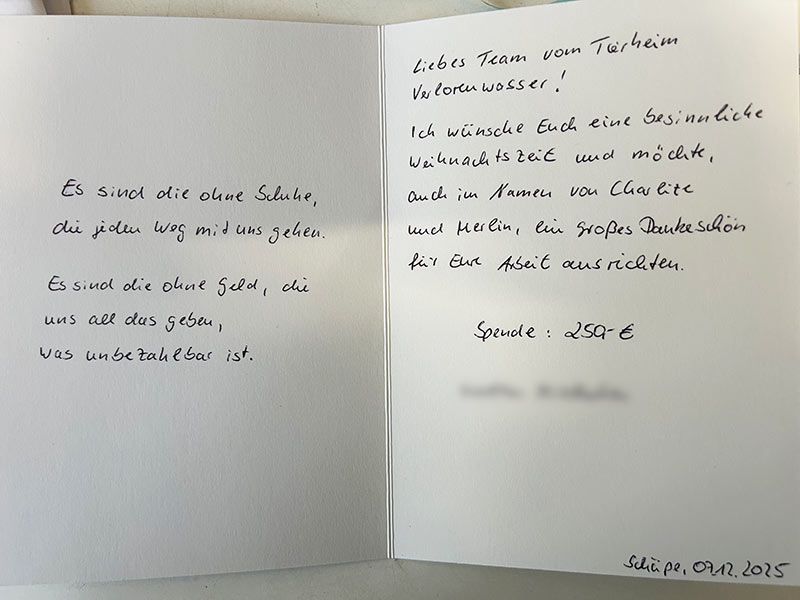 Es sind die ohne Schuhe,
die jeden Weg mit uns gehen.
Es sind die ohne Geld, die
uns all das geben,
was unbezahlbar ist.
Liebes Team vom Tierheim
Verlorenwasser!
Ich wünsche Euch eine besinnliche
Weihnachtszeit und möchte,
auch im Namen von Charlize
und Merlin, ein großes Dankeschön
für Eure Arbeit ausrichten.
Spende: 250,- €
07.12.2025